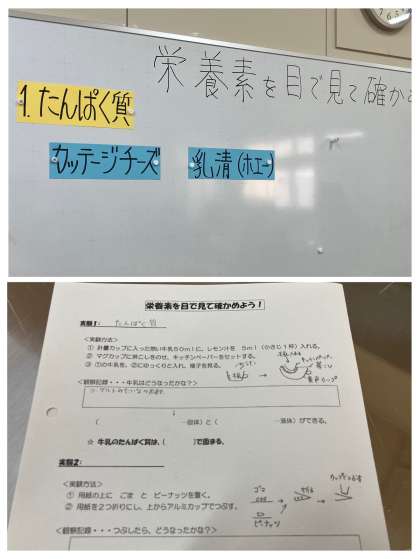 栄養素を目で見て確か
1.たんぱく質
カッテージチーズ
乳清(ホエー)
栄養素を目で見て確かめよう！
実験1: たんぱく質
<実験方法>
① 計量カップに入った熱い牛乳50mlに、レモン汁を 5ml(小さじ1杯)入れる。
② マグカップに茶こしをのせ、キッチンペーパーをセットする。
③ ①の牛乳を、②にゆっくりと入れ、様子を見る。
<観察記録・・・牛乳はどうなったかな?>
( 固体)と( 液体)ができる。
☆ 牛乳のたんぱく質は、( )で固まる。
実験2:
<実験方法>
① 用紙の上に ごま と ピーナッツを置く。
② 用紙を2つ折りにし、上からアルミカップでつぶす。
ゴマ
ピーナッツ
<観察記録・・・つぶしたら、どうなったかな?>